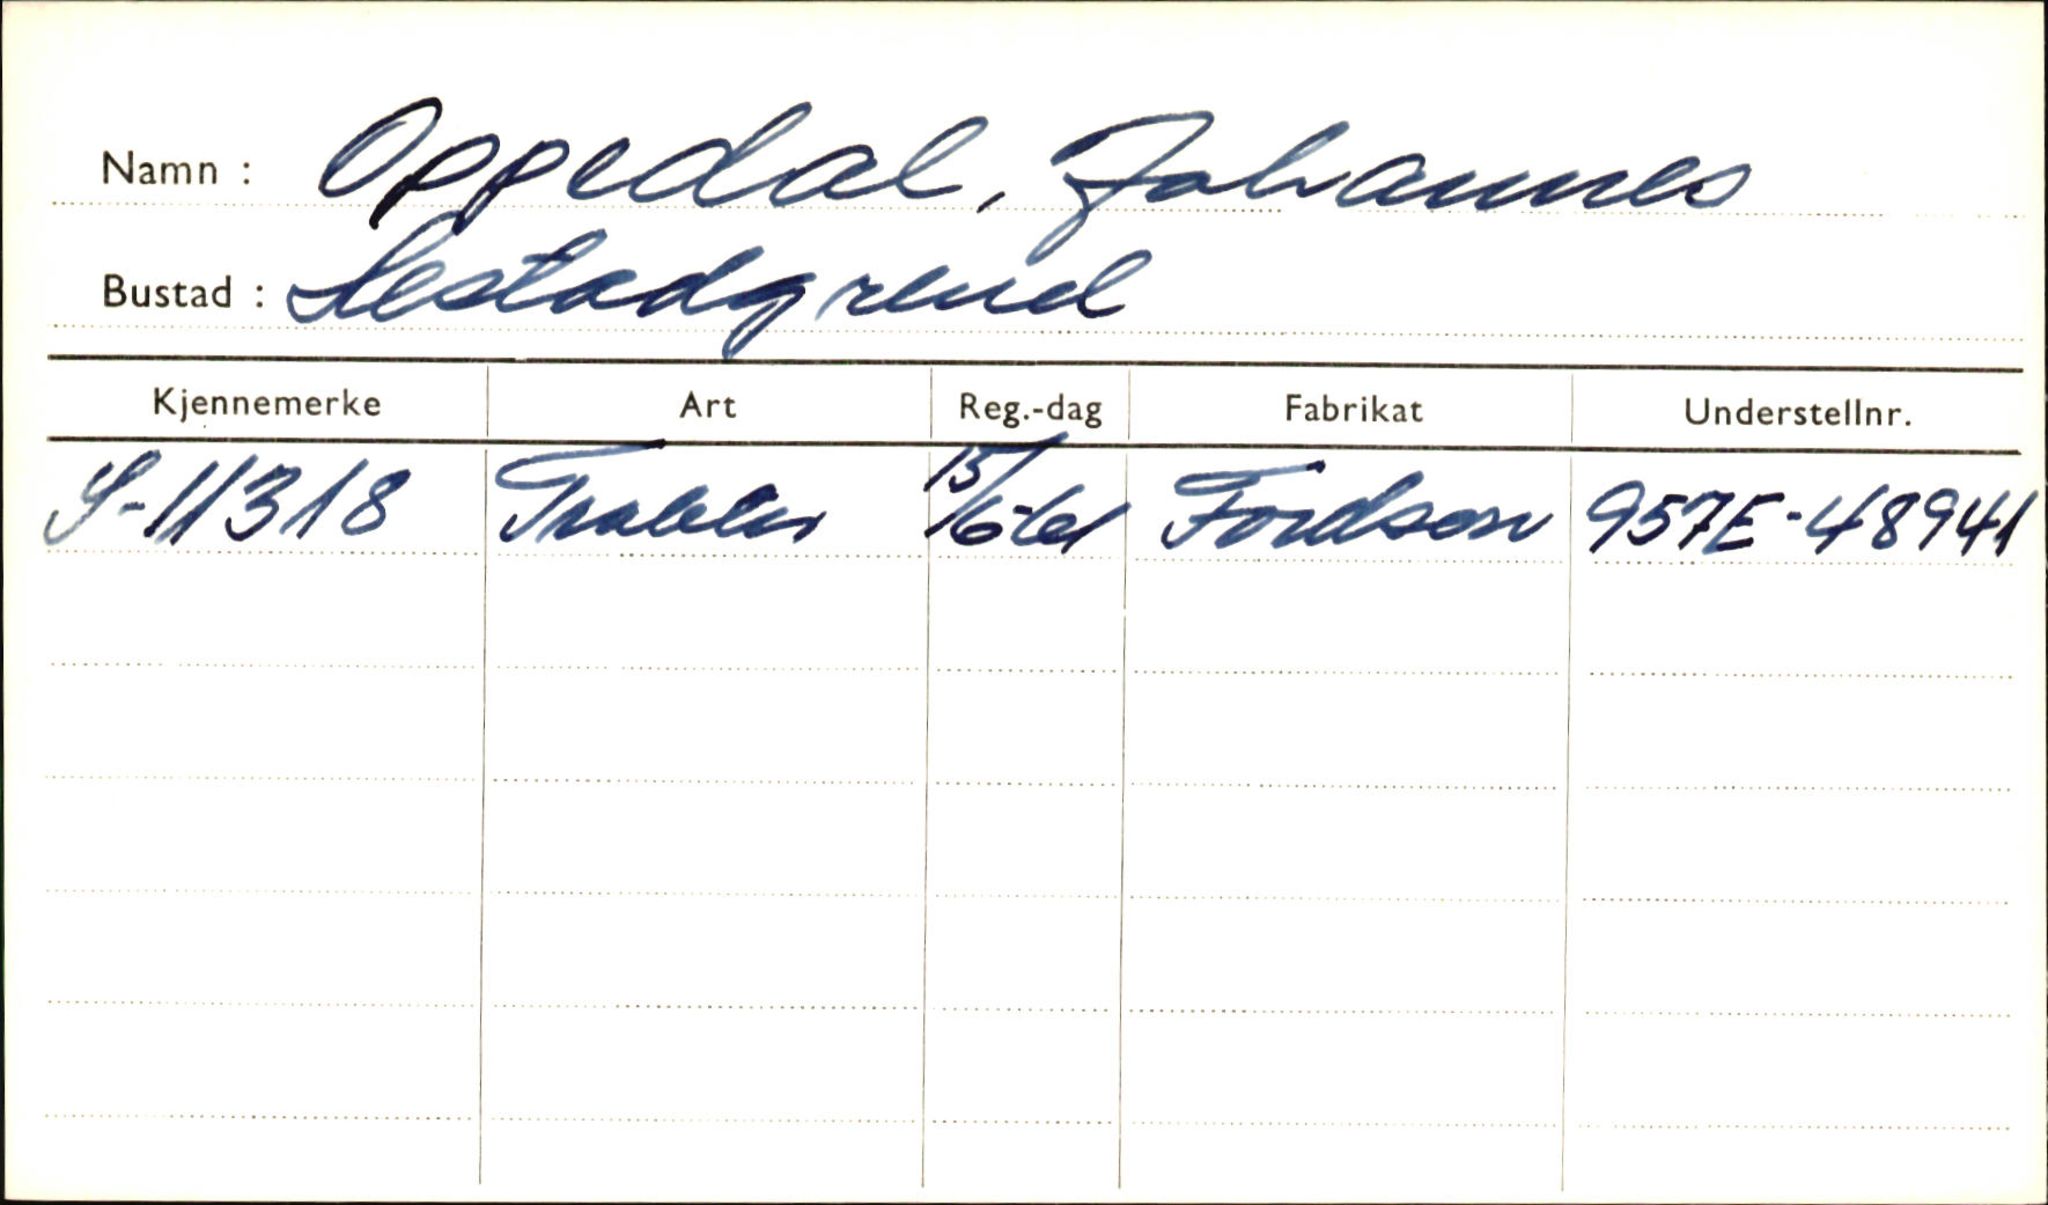 Namn : Oppedal, Johannes
Bustad : Sestadgrend
Kjennemerke Art Reg.-dag Fabrikat Understellnr.
S-11318 Traktor 15/6-61 Fordson 957E-48941